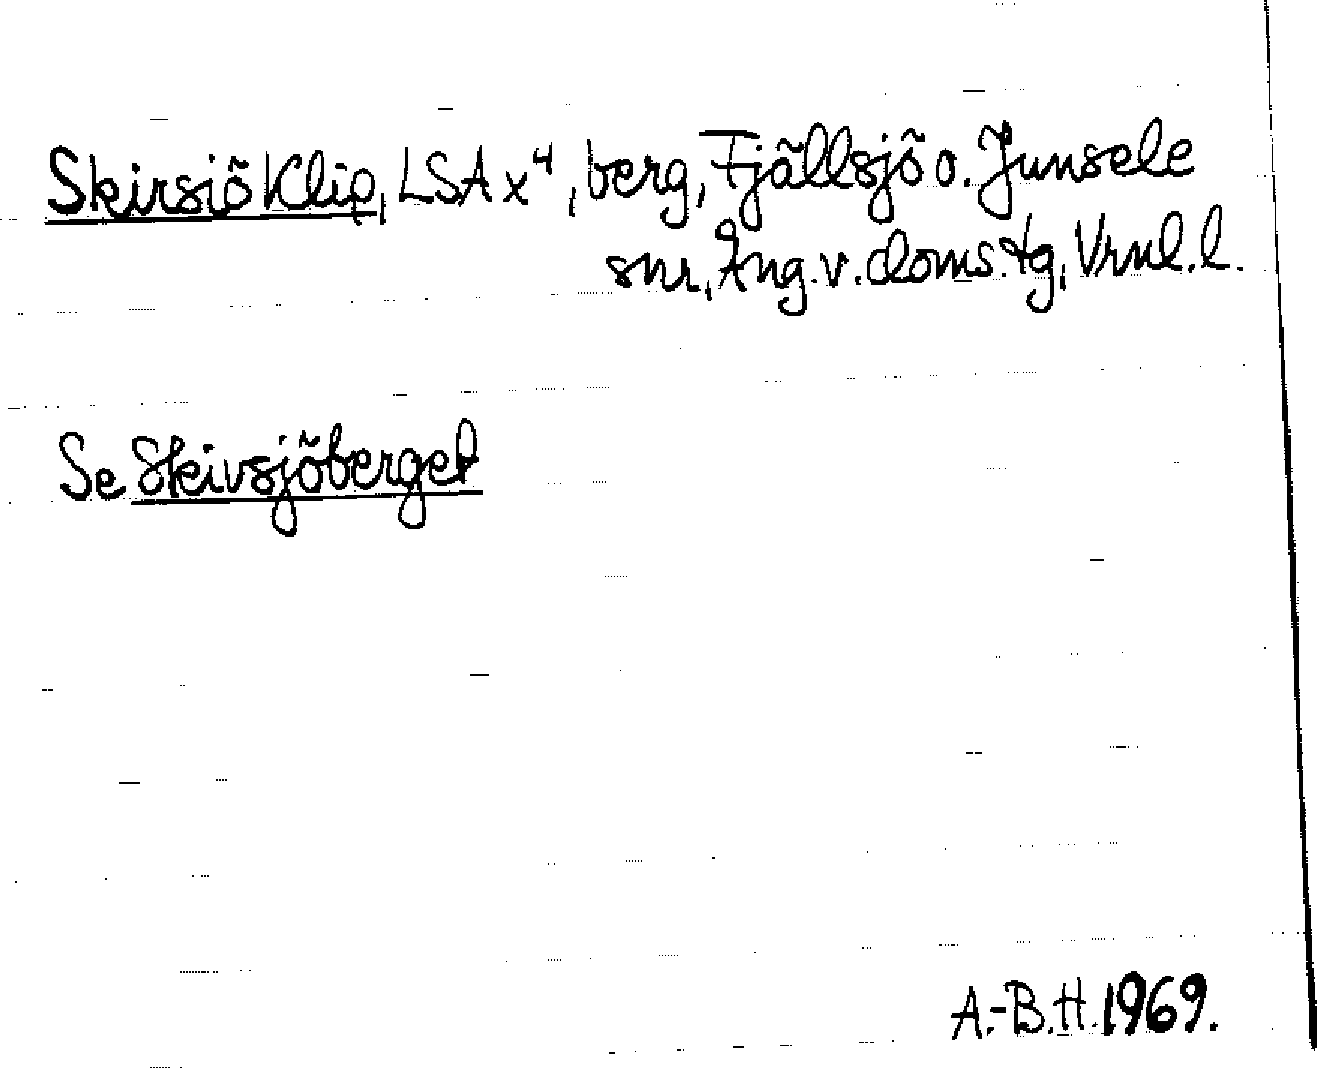 Skirsiö Klip, LSA x⁴, berg, Fjällsjö o. Junsele
snr, Ång. v. doms. tg, Vrnl. l.
Se Skivsjöberget
A.-B.H. 1969.